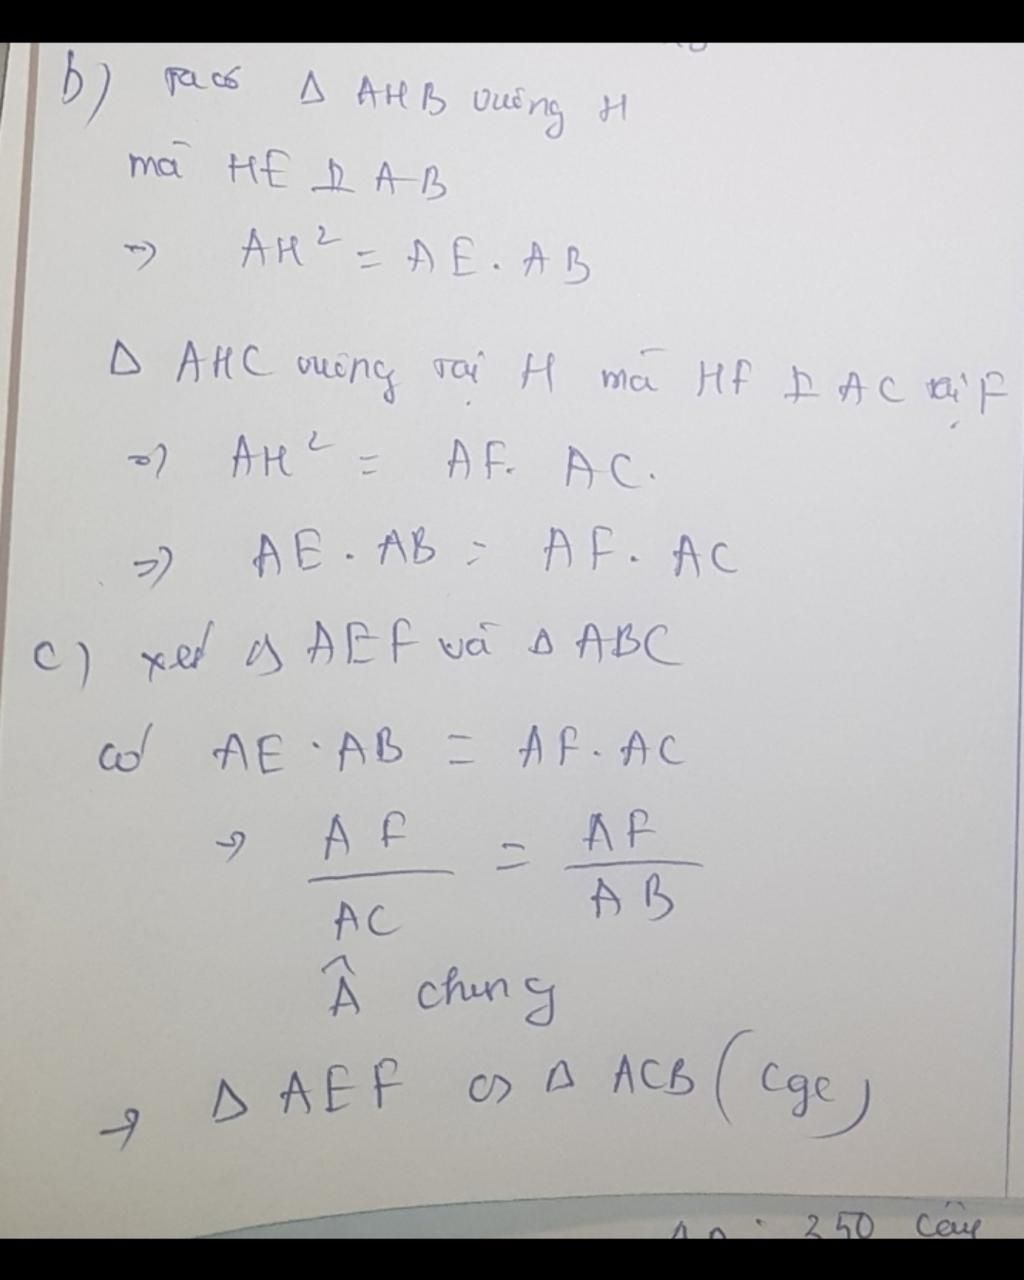 b) Ta có Δ AHB vuông H
mà HE ⊥ AB
=> AH² = AE . AB
Δ AHC vuông tại H mà HF ⊥ AC tại F
=> AH² = AF. AC.
=> AE . AB = AF . AC
c) xét Δ AEF và Δ ABC
có AE . AB = AF . AC
=> AF/AC = AF/AB
Â chung
=> Δ AEF ∽ Δ ACB (cgc)
250 cây